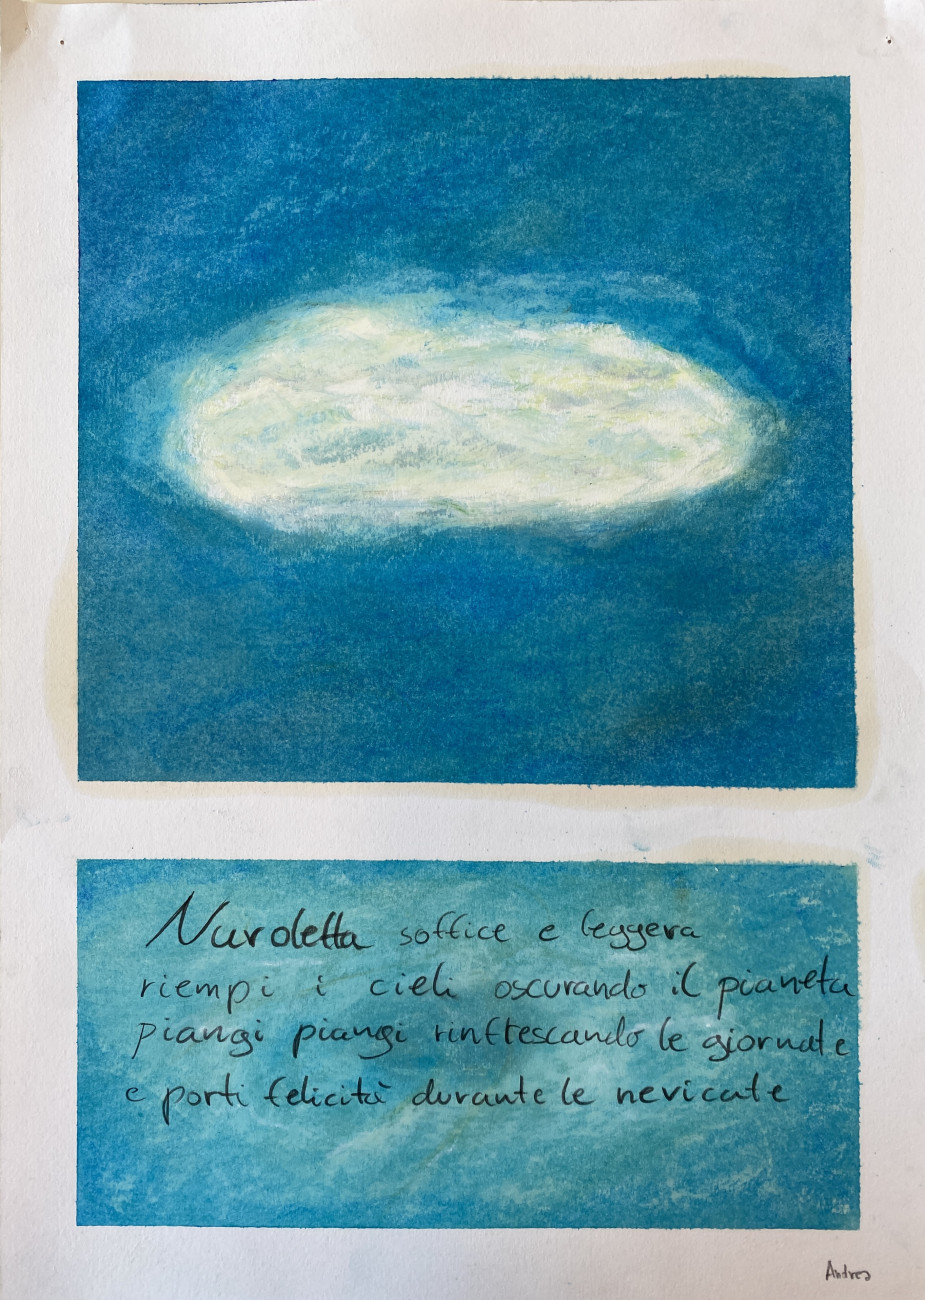 Nuvoletta soffice e leggera
riempi i cieli oscurando il pianeta
piangi piangi rinfrescando le giornate
e porti felicità durante le nevicate
Andrea